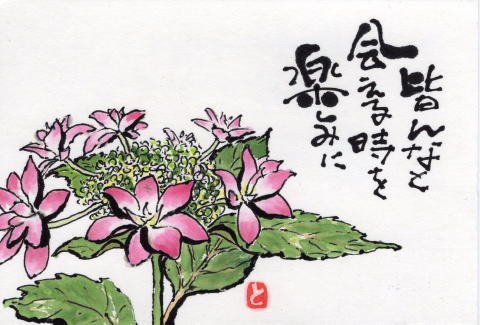 皆んなと
会える時を
楽しみに
と